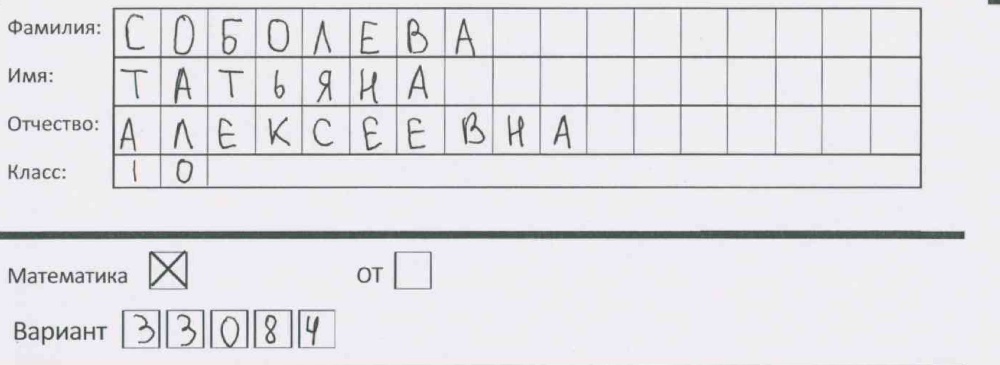 Фамилия: СОБОЛЕВА
Имя: ТАТЬЯНА
Отчество: АЛЕКСЕЕВНА
Класс: 10
Математика ☒ ОТ ☐
Вариант 33084